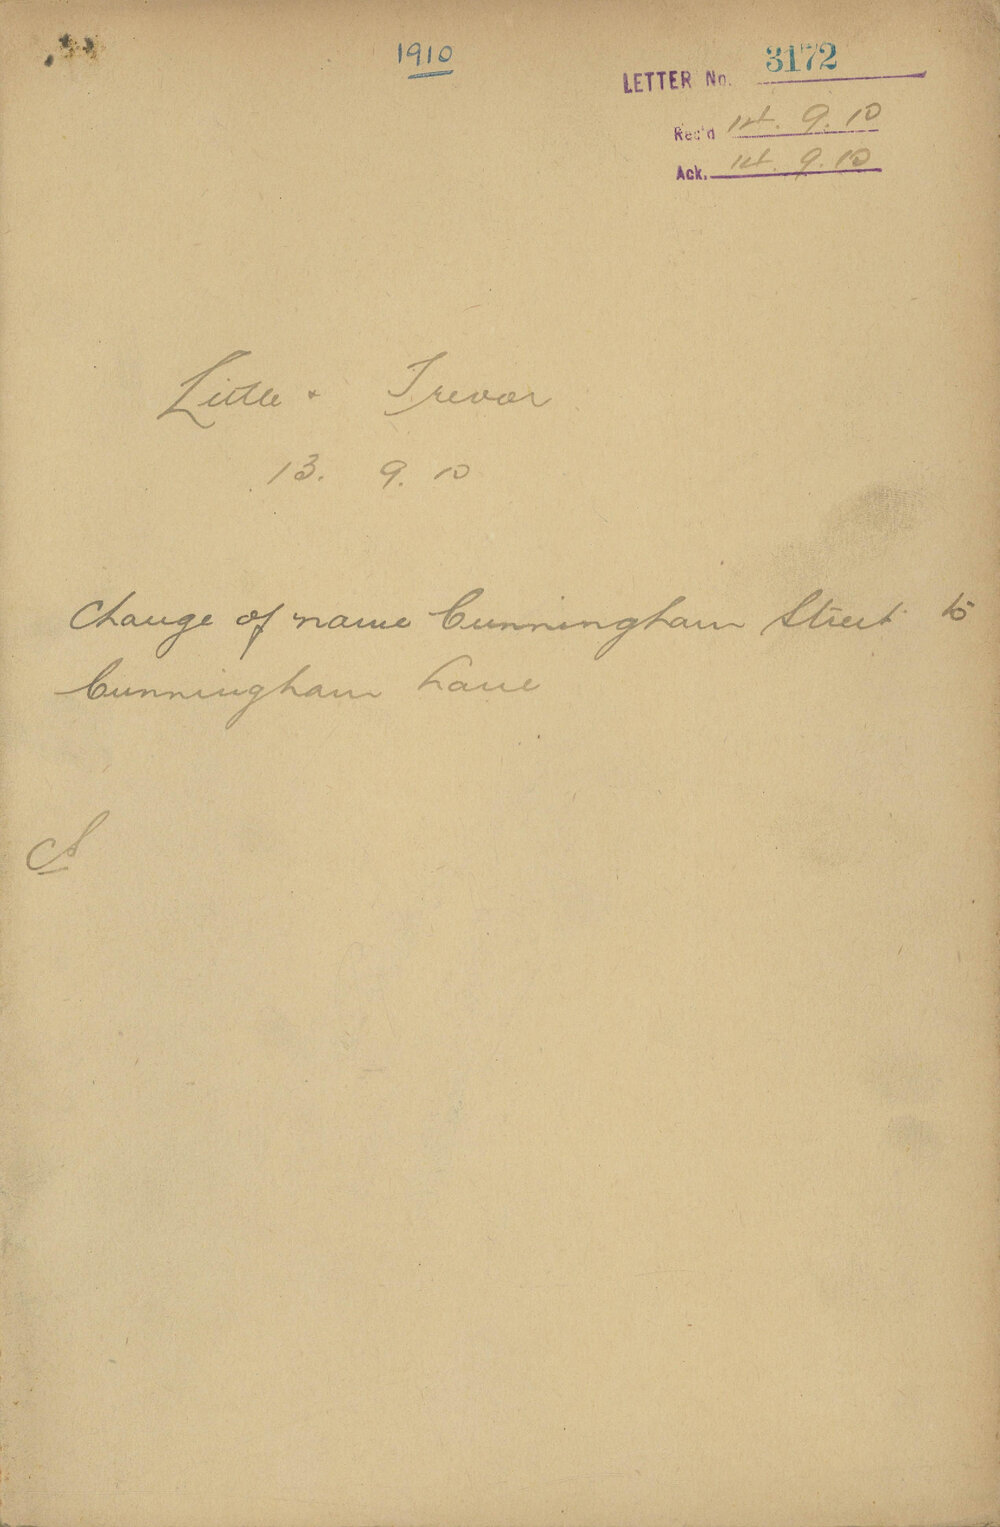 1910
LETTER No. 3172
Rec'd 14. 9. 10
Ack. 14. 9. 10
Little & Trevor
13. 9. 10
Change of name Cunningham Street to
Cunningham Lane